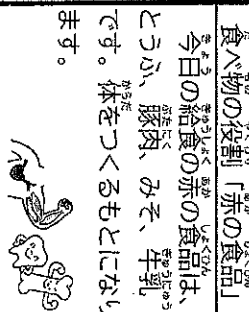 食べ物の役割「赤の食品」
今日の給食の赤の食品は、
とうふ、豚肉、みそ、牛乳
です。体をつくるもとになり
ます。